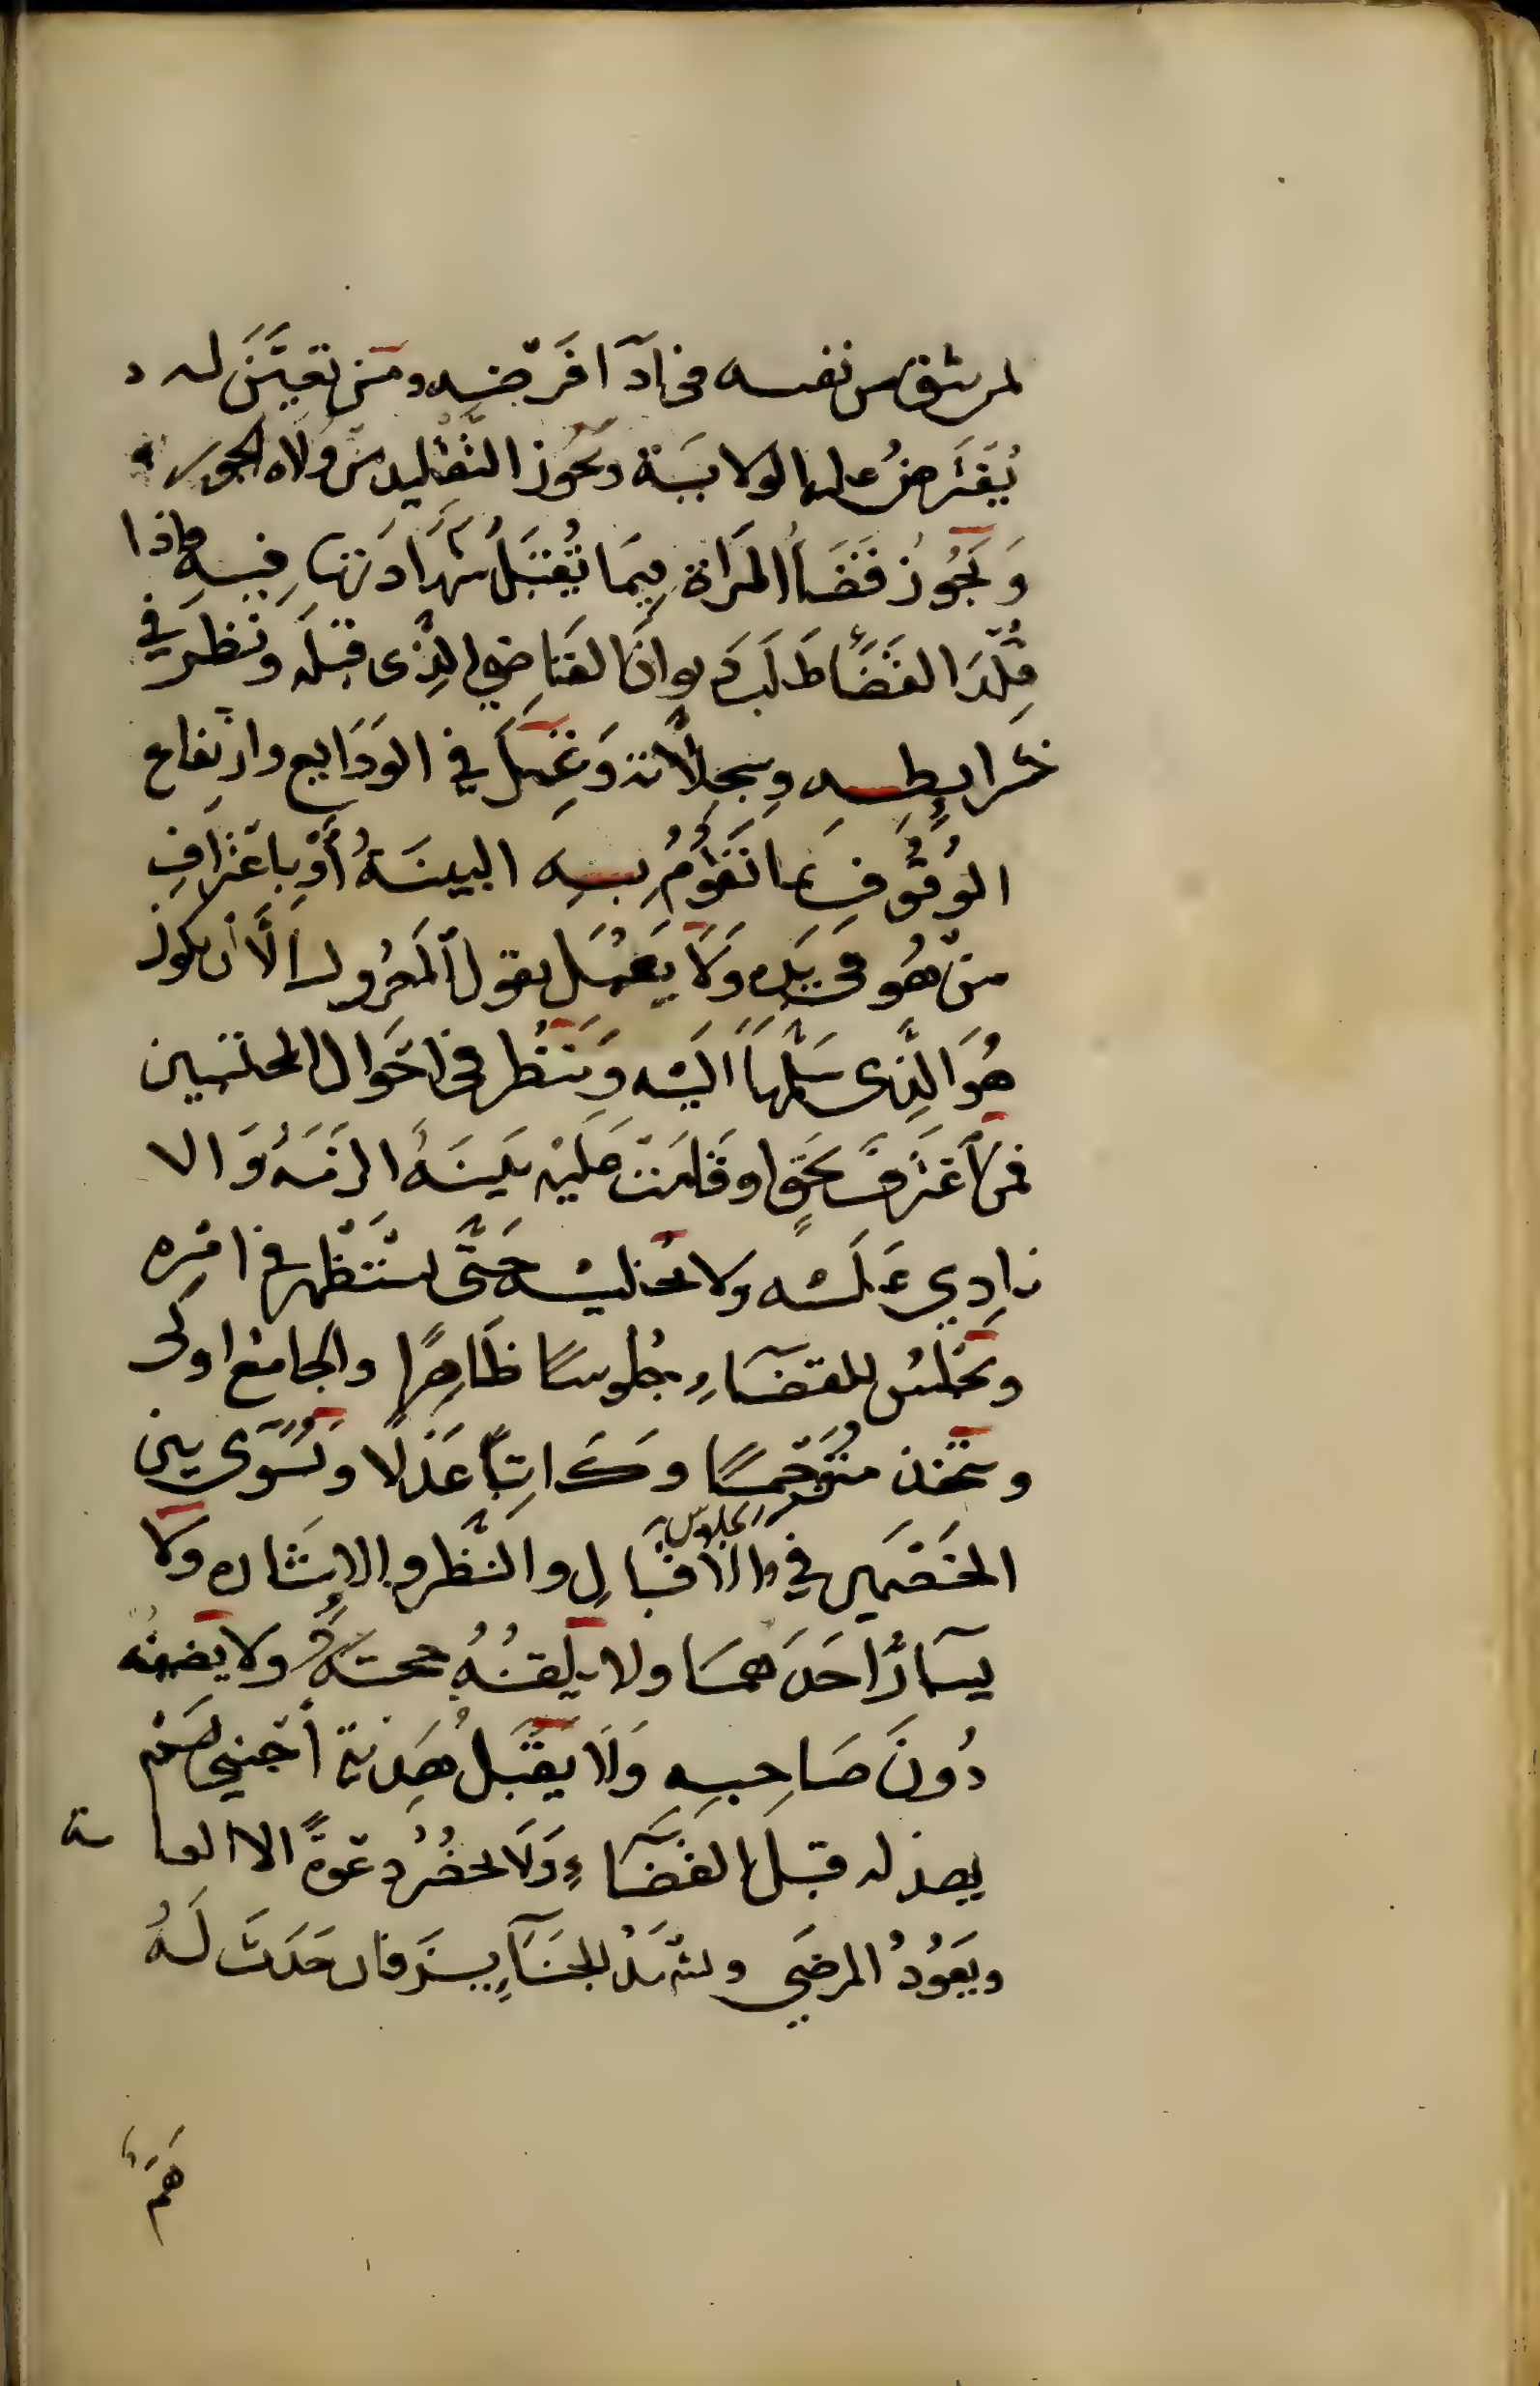 لمن يثق من نفسه في ادآ فرضه ومن تعين له
يفترض عليه الولاية ويجوز التقليد من ولاه الجور
ويجوز قضاء المراة فيما تقبل شهادتها فيه فاذا
قلد القضاء طلب ديوان القاضي الذي قبله ونظر في
خرايطه وسجلاته وعمل في الودايع وارتفاع
الوقوف بما تقوم به البينة أو باعتراف
من هو في يده ولا يعمل بقول المعزول الا أن يكون
هو الذي سلمها اليه وينظر في احوال المحبوسين
فمن اعترف بحق او قامت عليه بينة الزمه والا
نادي عليه ولا يخليه حتى يستظهر في امره
ويجلس للقضاء جلوسا ظاهرا والجامع اولى
ويتخذ مترجما وكاتبا عدلا ويسوى بين
الخصمين في الجلوس والاقبال والنظر والاشاره ولا
يسار احدهما ولا يلقنه حجته ولا يضيفه
دون صاحبه ولا يقبل هدية أجنبي لم
يهد له قبل القضاء ولا يحضر دعوة الا العامة
ويعود المرضي ويشهد الجنايز فان حدث له
هم